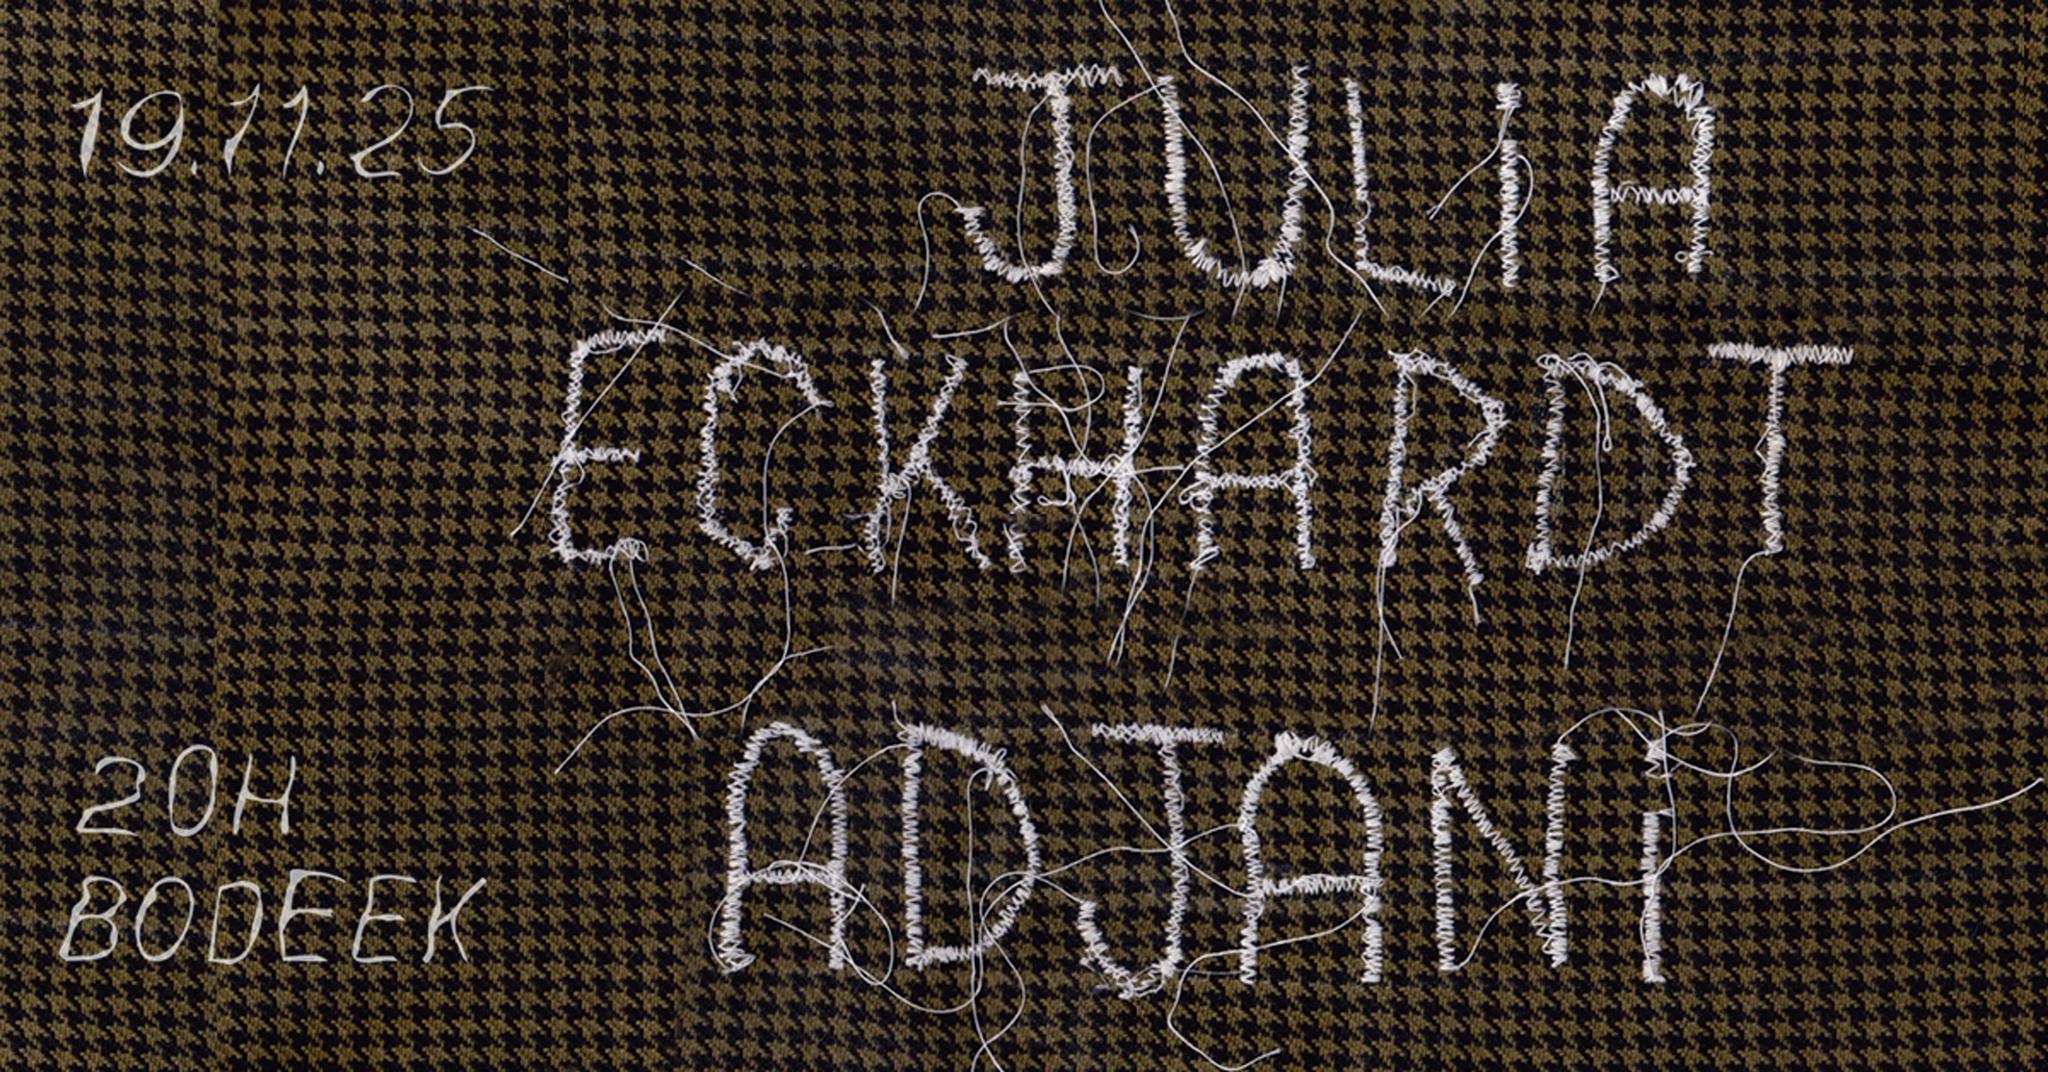 19.11.25
JULiA
ECKHARDT
ADJANi
20H
BODEEK